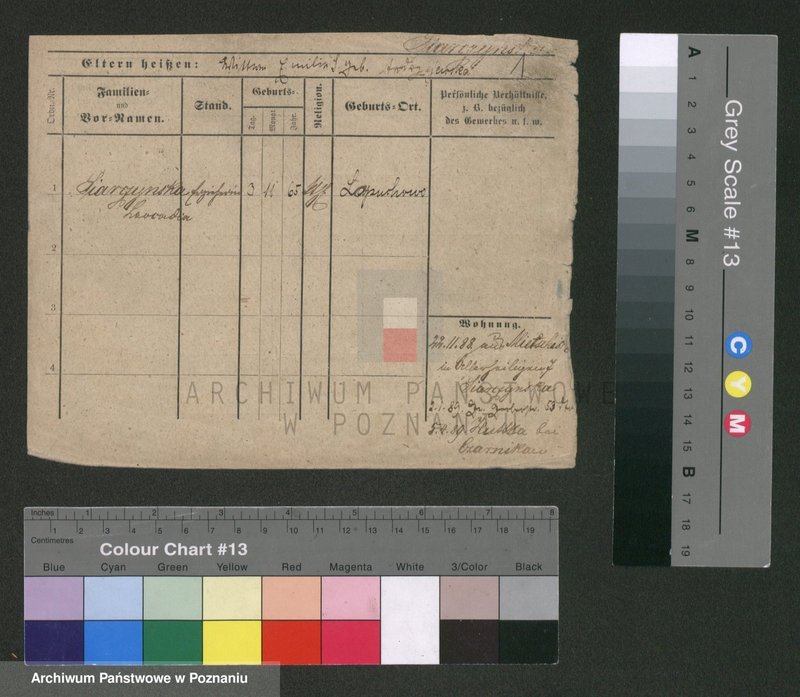 Siarczynska
Eltern heißen: Wittwe Emilie S geb.
Ordn.-Nr.
Familien-
und
Vor-Namen.
Stand.
Geburts-
Tag.
Monat.
Jahr.
Religion.
Geburts-Ort.
Persönliche Verhältnisse,
z. B. bezüglich
des Gewerbes u. s. w.
1 Siarczynska Erzieherin 3 11 65 Lopuchowo
Leocadia
2
3
4
Wohnung.
22.11.88 aus
Siarczynska
2.1.89
5.4.89 Hutta bei
Czarnikau
ARCHIWUM PAŃSTWOWE
W POZNANIU
Grey Scale #13
A 1 2 3 4 5 6 M 8 9 10 11 12 13 14 15 B 17 18 19
C
Y
M
Inches 1 2 3 4 5 6 7 8
Centimetres 1 2 3 4 5 6 7 8 9 10 11 12 13 14 15 16 17 18 19
Colour Chart #13
Blue Cyan Green Yellow Red Magenta White 3/Color Black
Archiwum Państwowe w Poznaniu